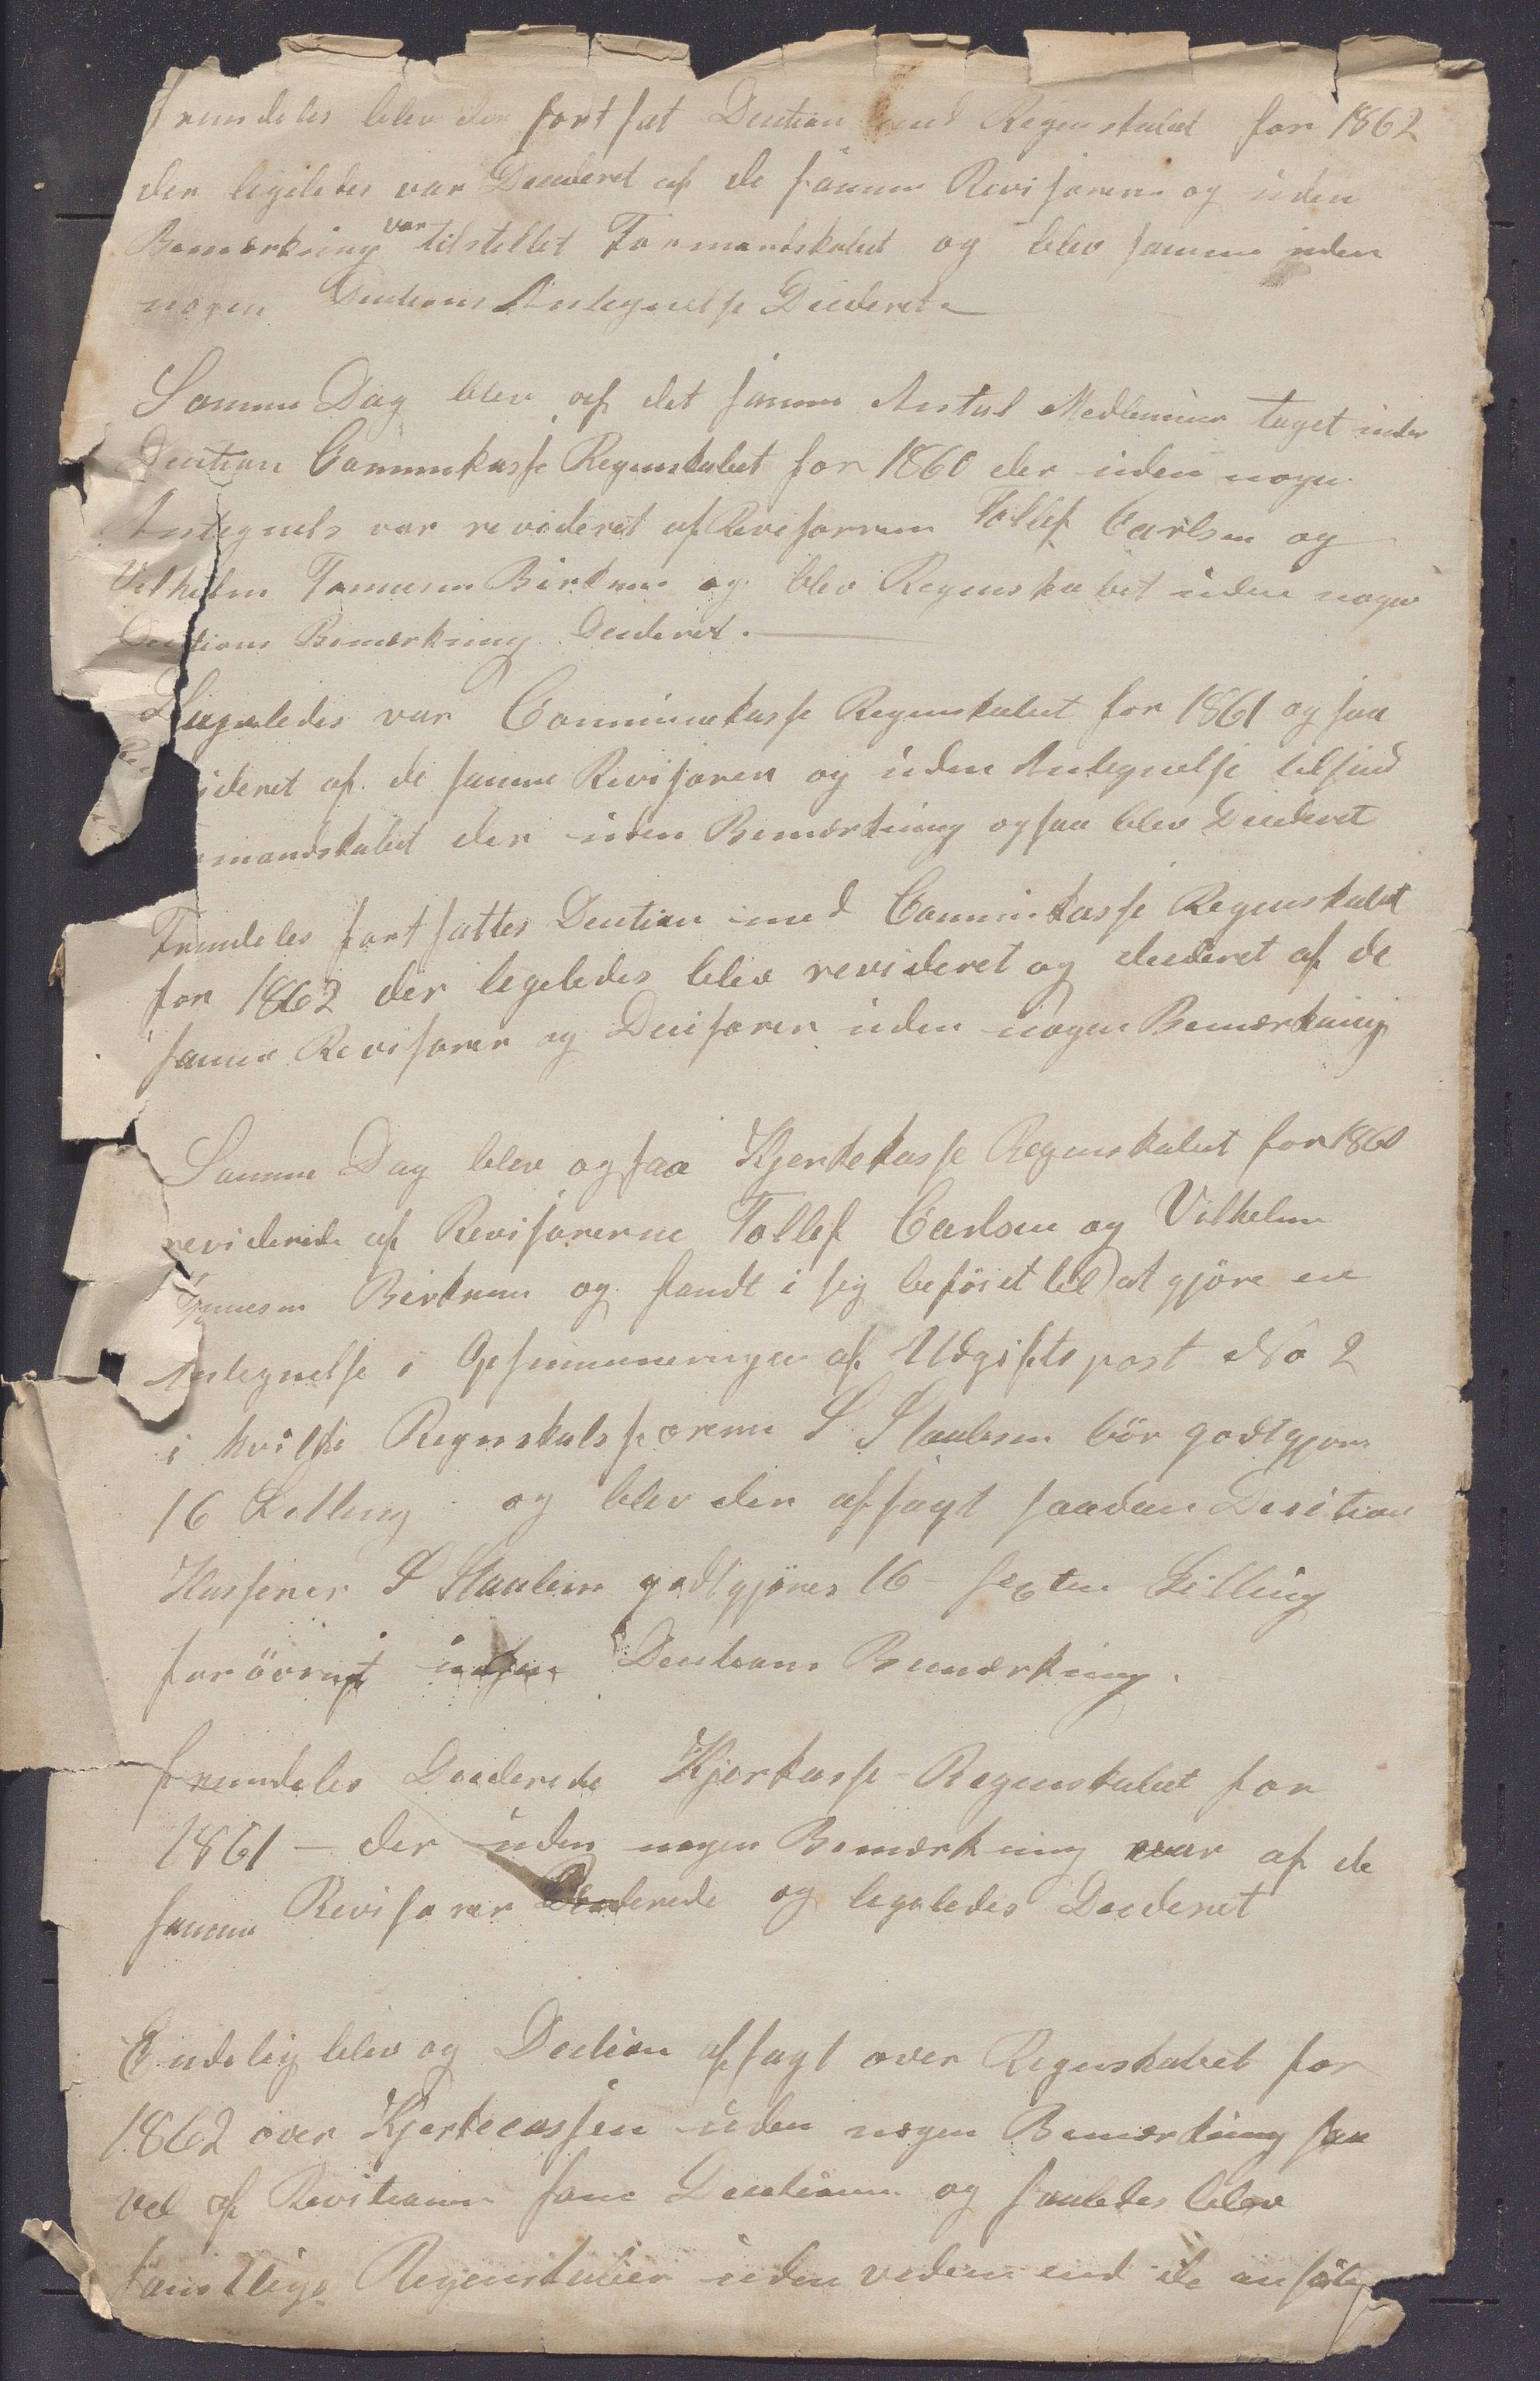 fremdeles blev der fortsat Decition med Regenskabet for 1862
der legeledes var Decideret af de samme Revisorerne og uden
Bemærkning var tilstellet Formandskabet og blev samme uden
nogen Decitions Antegnelse Decideret
Samme Dag blev af det samme Antal Medlemmer taget under
Decition Commekasse Regenskabet for 1860 der uden nogen
Antegnels var revideret af Revisorrerne Tollef Carlsen og
Vilhelm Tønnesen Birkrem og blev Regenskabet uden nogen
Decitions Bemærkning Decideret.
Ligeledes var Commnekasse Regenskabet for 1861 ogsaa
Revideret af de samme Revisorer og uden Antegnelse tilsend
mandskabet der uden Bemærkning ogsaa blev Decideret
Fremdeles fortsattes Decition med Commekasse Regenskabet
for 1862 der legeledes blev revideret og decideret af de
samme Revisorer og Decisorer uden nogen Bemærkning
Samme Dag blev ogsaa Kjerkekasse Regenskabet for 1860
reviderede af Revisorerne Tollef Carlsen og Vilhelm
Tønnesen Birkrem og fandt i sig beføiet til at gjøre en
Antegnelse i Opsummeringen af Udgifts post No 2
i hvilke Regnskabsførerne S Staalesen bør godtgjøres
16 Skilling og blev der afsagt saadan Decition
Kasserer S Staalesen godtgjøres 16 sexten Skilling
forøvrigt uden Decitions Bemærkning.
fremdeles Deciderede Kjerkasse-Regenskabet for
1861 – der uden nogen Bemærkning var af de
samme Revisorer derede og legeledes Decideret
Endelig blev og Decition afsagt over Regenskabet for
1862 over Kjerkecassen uden nogen Bemærkning saa
vel af Revitionen som Decitionen og saaledes blev
samtlige Regenskaber uden vedere end de anførte